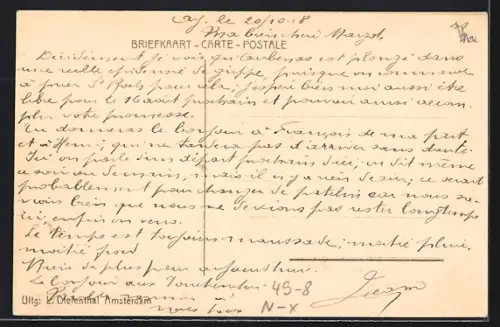 le 20/10-18
Ma bien chère Margot
BRIEFKAART - CARTE - POSTALE
Décidément je vois qu'Aubenas est plongé dans
une réelle épidémie de grippe, puisque on commence
à prier St Roch pour cela, j'espère bien moi aussi être
libre pour le 16 août prochain et pouvoir ainsi accom-
plir votre promesse.
Tu donneras le bonjour à François de ma part
et à qui ne tardera pas d'arriver sans doute.
Ici on parle d'un départ prochain d'ici, on dit même
ce soir ou demain, mais il n'y a rien de sûr; ce serait
probablement pour changer de patelins car nous sa-
vons bien que nous ne devions pas rester longtemps
ici enfin on verra.
Le temps est toujours maussade, moitié pluie,
moitié froid
Rien de plus pour aujourd'hui.
Le bonjour aux
à
vous tous
Uitg: L. Diefenthal Amsterdam
49-8
N-x